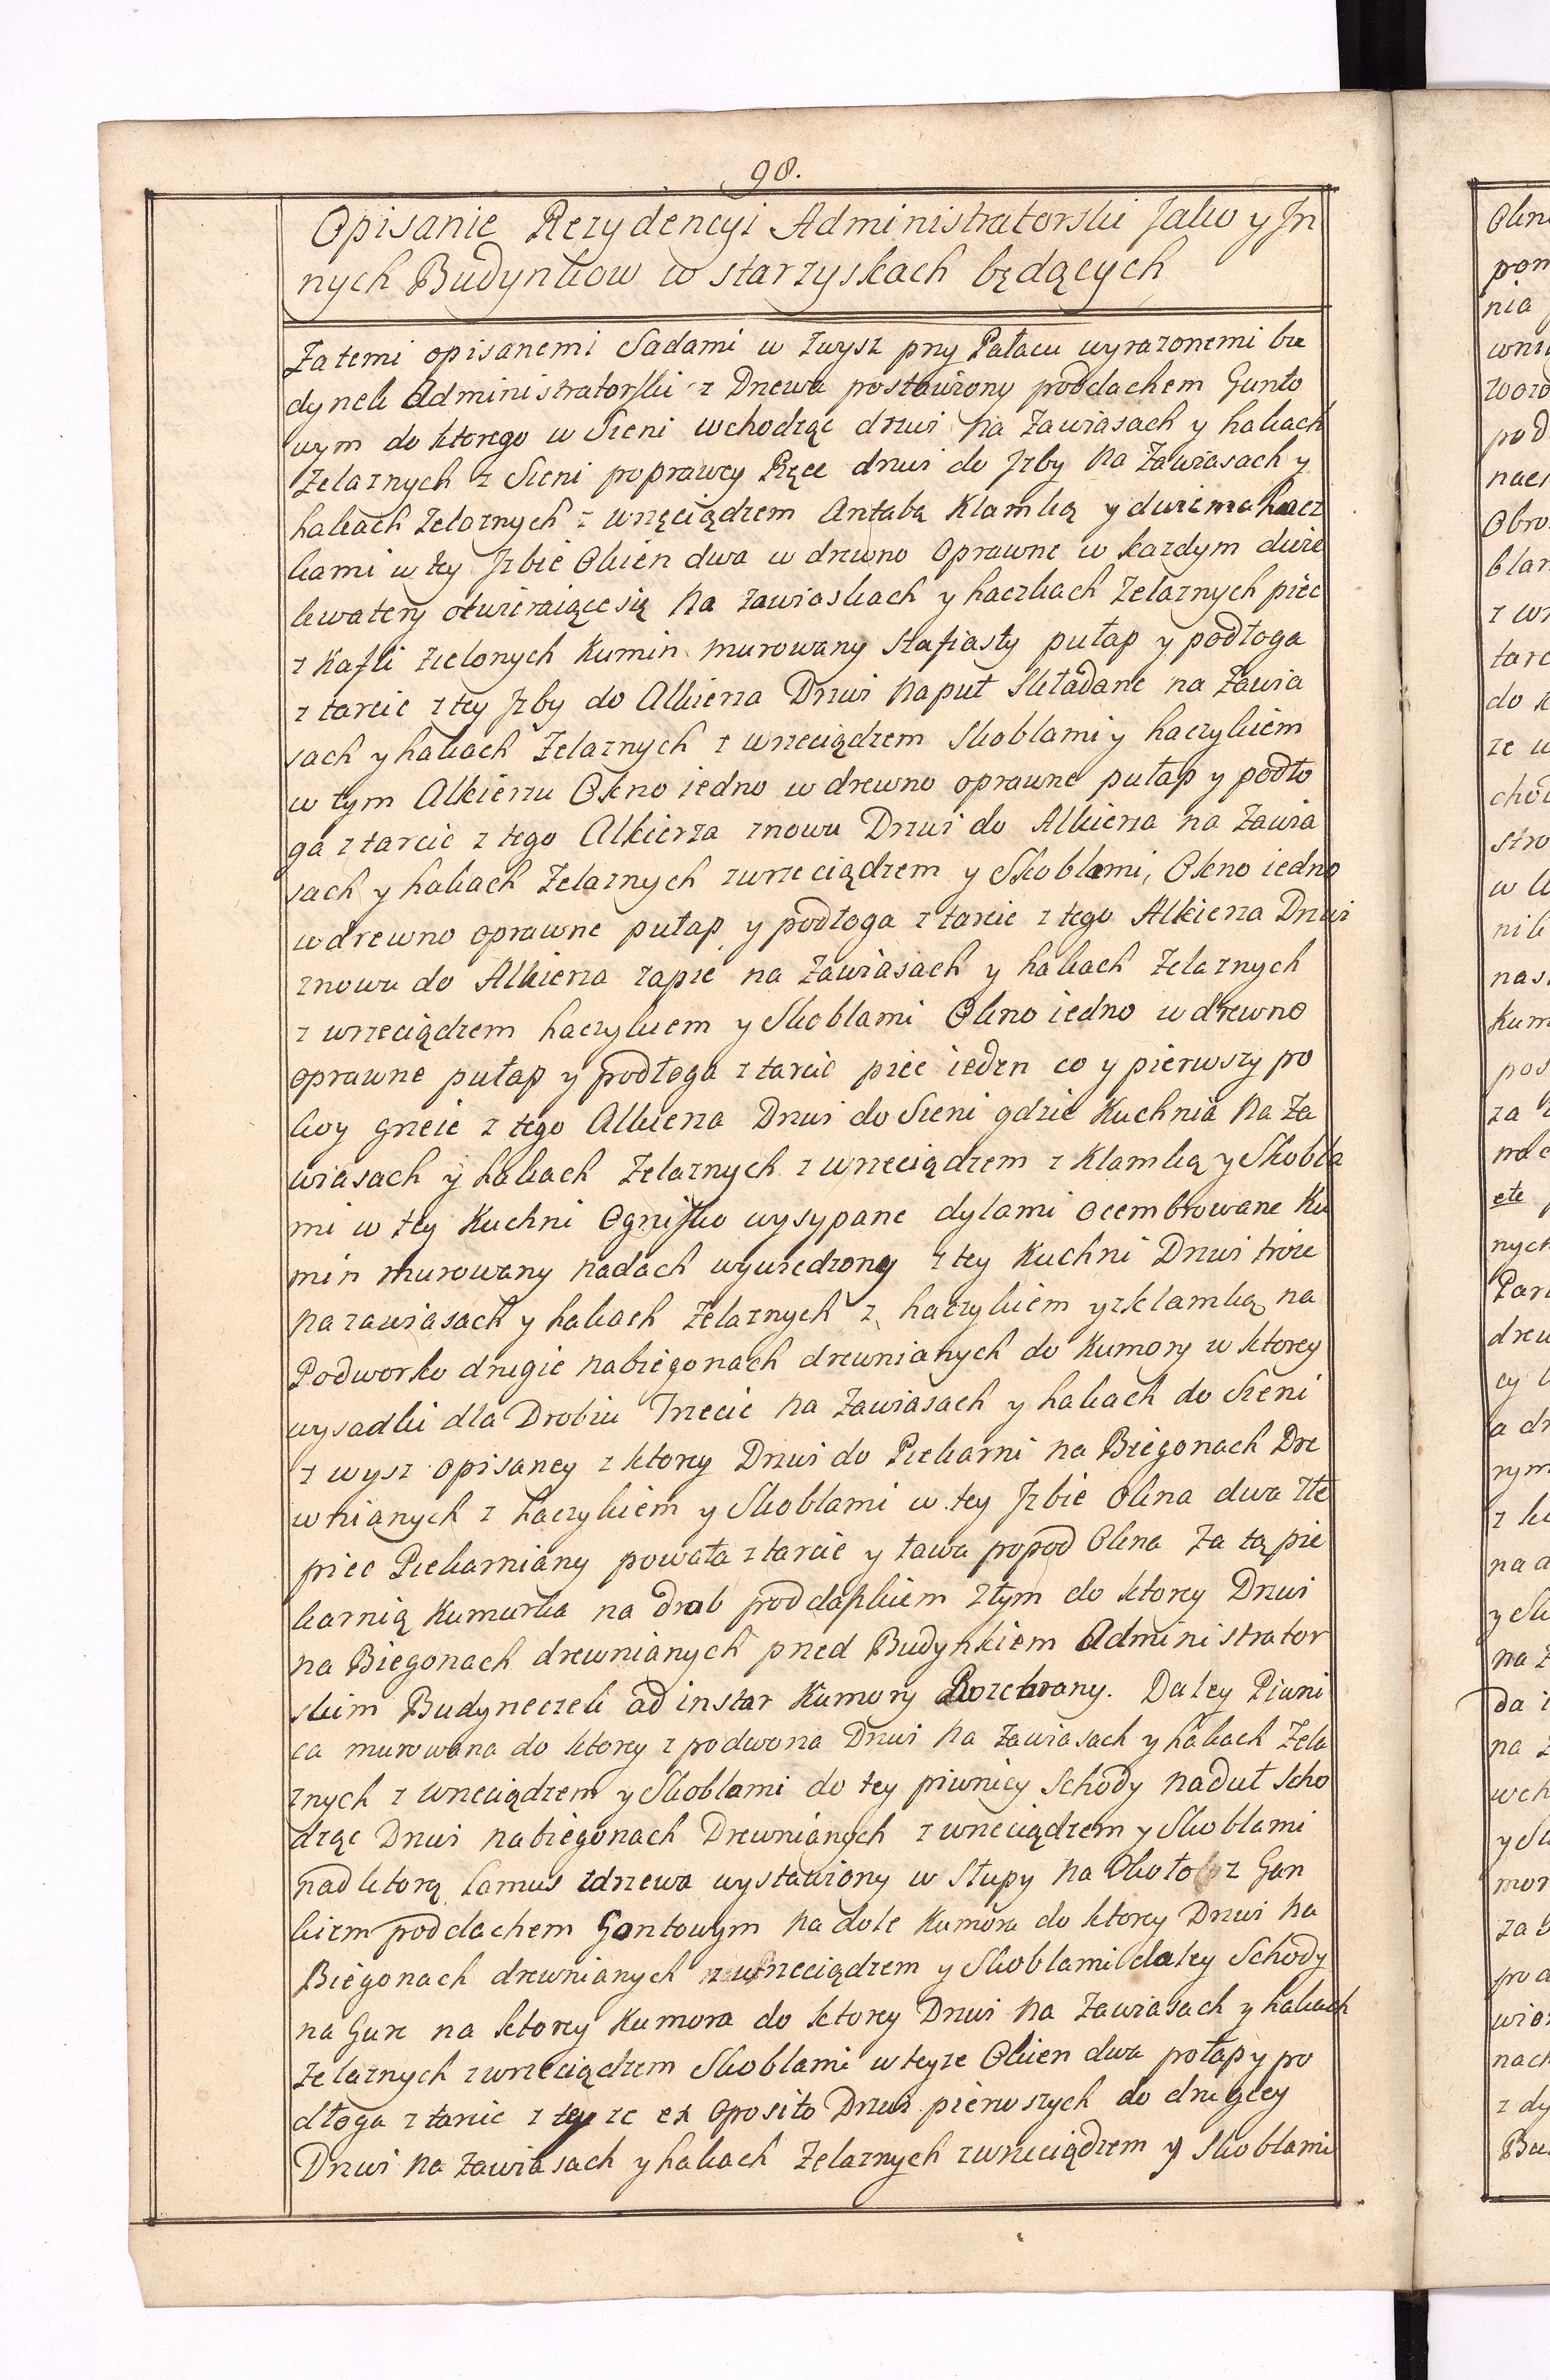 98.
Opisanie Rezydencyi Administratorski Jako y In
nych Budynkow w starzyskach będących
Za temi opisanemi Sadami w zwysz przy Pałacu wyrazonemi bu
dynek Administratorski z Drzewa postawiony pod dachem Gunto
wym do ktorego w Sieni wchodząc drzwi na Zawiasach y hakach
Zelaznych z Sieni poprawey Ręce drzwi do Izby na Zawiasach y
hakach Zelaznych z wrzęciądzem Antabą Klamką y dwiema hacz
kami w tey Izbie Okien dwa w drewno Oprawne w kazdym dwie
kwatery otwieraiące się na zawiaskach y haczkach Zelaznych piec
z Kafli zielonych Kumin murowany Stafiasty pułap y podłoga
z tarcic z tey Izby do Alkierza Drzwi na puł Składane na Zawia
sach y hakach Zelaznych z wrzeciądzem Skoblami y haczykiem
w tym Alkierzu Okno iedno w drewno oprawne pułap y podło
ga z tarcic z tego Alkierza znowu Drzwi do Alkierza na Zawia
sach y hakach Zelaznych z wrzeciądzem y Skoblami, Okno iedno
w drewno oprawne pułap y podłoga z tarcic z tego Alkierza Drzwi
znowu do Alkierza zapie na Zawiasach y hakach Zelaznych
z wrzeciądzem haczykiem y Skoblami Okno iedno w drewno
oprawne pułap y podłoga z tarcic piec ieden co y pierwszy po
koy grzeie z tego Alkierza Drzwi do Sieni gdzie Kuchnia na Za
wiasach y hakach Zelaznych z wrzeciądzem z Klamką y Skobla
mi w tey Kuchni Ognisko wysypane dylami ocembrowane Ku
min murowany nadach wywiedziony z tey Kuchni Drzwi troie
na zawiasach y hakach Zelaznych z haczykiem y z klamką na
Podworko drugie nabiegonach drewnianych do Kumory w ktorey
wysadki dla Drobiu Trzecie na Zawiasach y hakach do Sieni
z wysz opisaney z ktorey Drzwi do Piekarni na Biegonach Dre
wnianych z haczykiem y Skoblami w tey Izbie Okna dwa złe
piec Piekarniany powała z tarcic y ława popod Okna Za tą pie
karnią Kumurka na drob pod daszkiem złym do ktorey Drzwi
na Biegonach drewnianych przed Budynkiem Administrator
skim Budyneczek ad instar Kumory Rozebrany. Daley Piwni
ca murowana do ktorey z podworza Drzwi na Zawiasach y hakach Zela
znych z wrzeciądzem y Skoblami do tey piwnicy Schody naduł Scho
dząc Drzwi nabiegonach Drewnianych z wrzeciądzem y Skoblami
nad ktorą Lamus z drzewa wystawiony w Słupy na Około z Gan
kiem pod dachem Gontowym na dole Kumora do ktorey Drzwi na
Biegonach drewnianych z wrzeciądzem y Skoblami daley Schody
na Gure na ktorey Kumora do ktorey Drzwi na Zawiasach y hakach
Zelaznych z wrzeciądzem Skoblami w teyze Okien dwa połap y po
dłoga z tarcic z teyze ex Oposito Drzwi pierwszych do drugiey
Drzwi na Zawiasach y hakach Zelaznych z wrzeciądzem y Skoblami